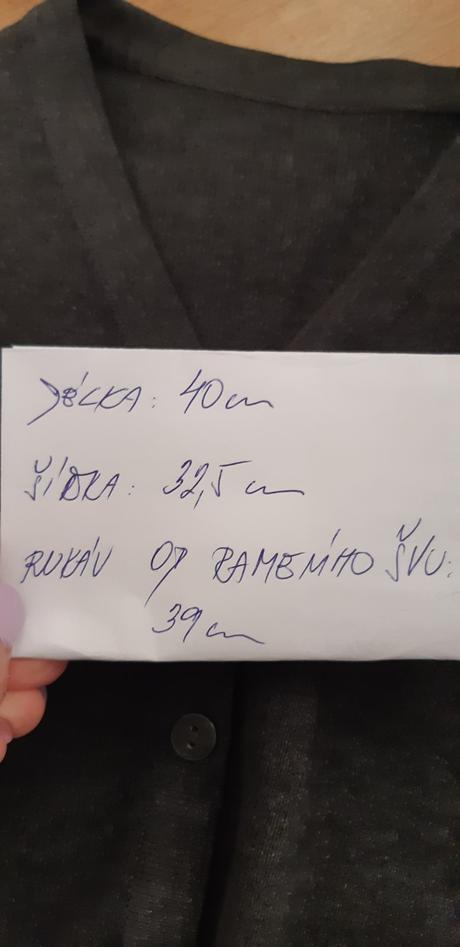 DÉLKA: 40cm
ŠÍŘKA: 32,5cm
RUKÁV OD RAMENÍHO ŠVU:
39cm